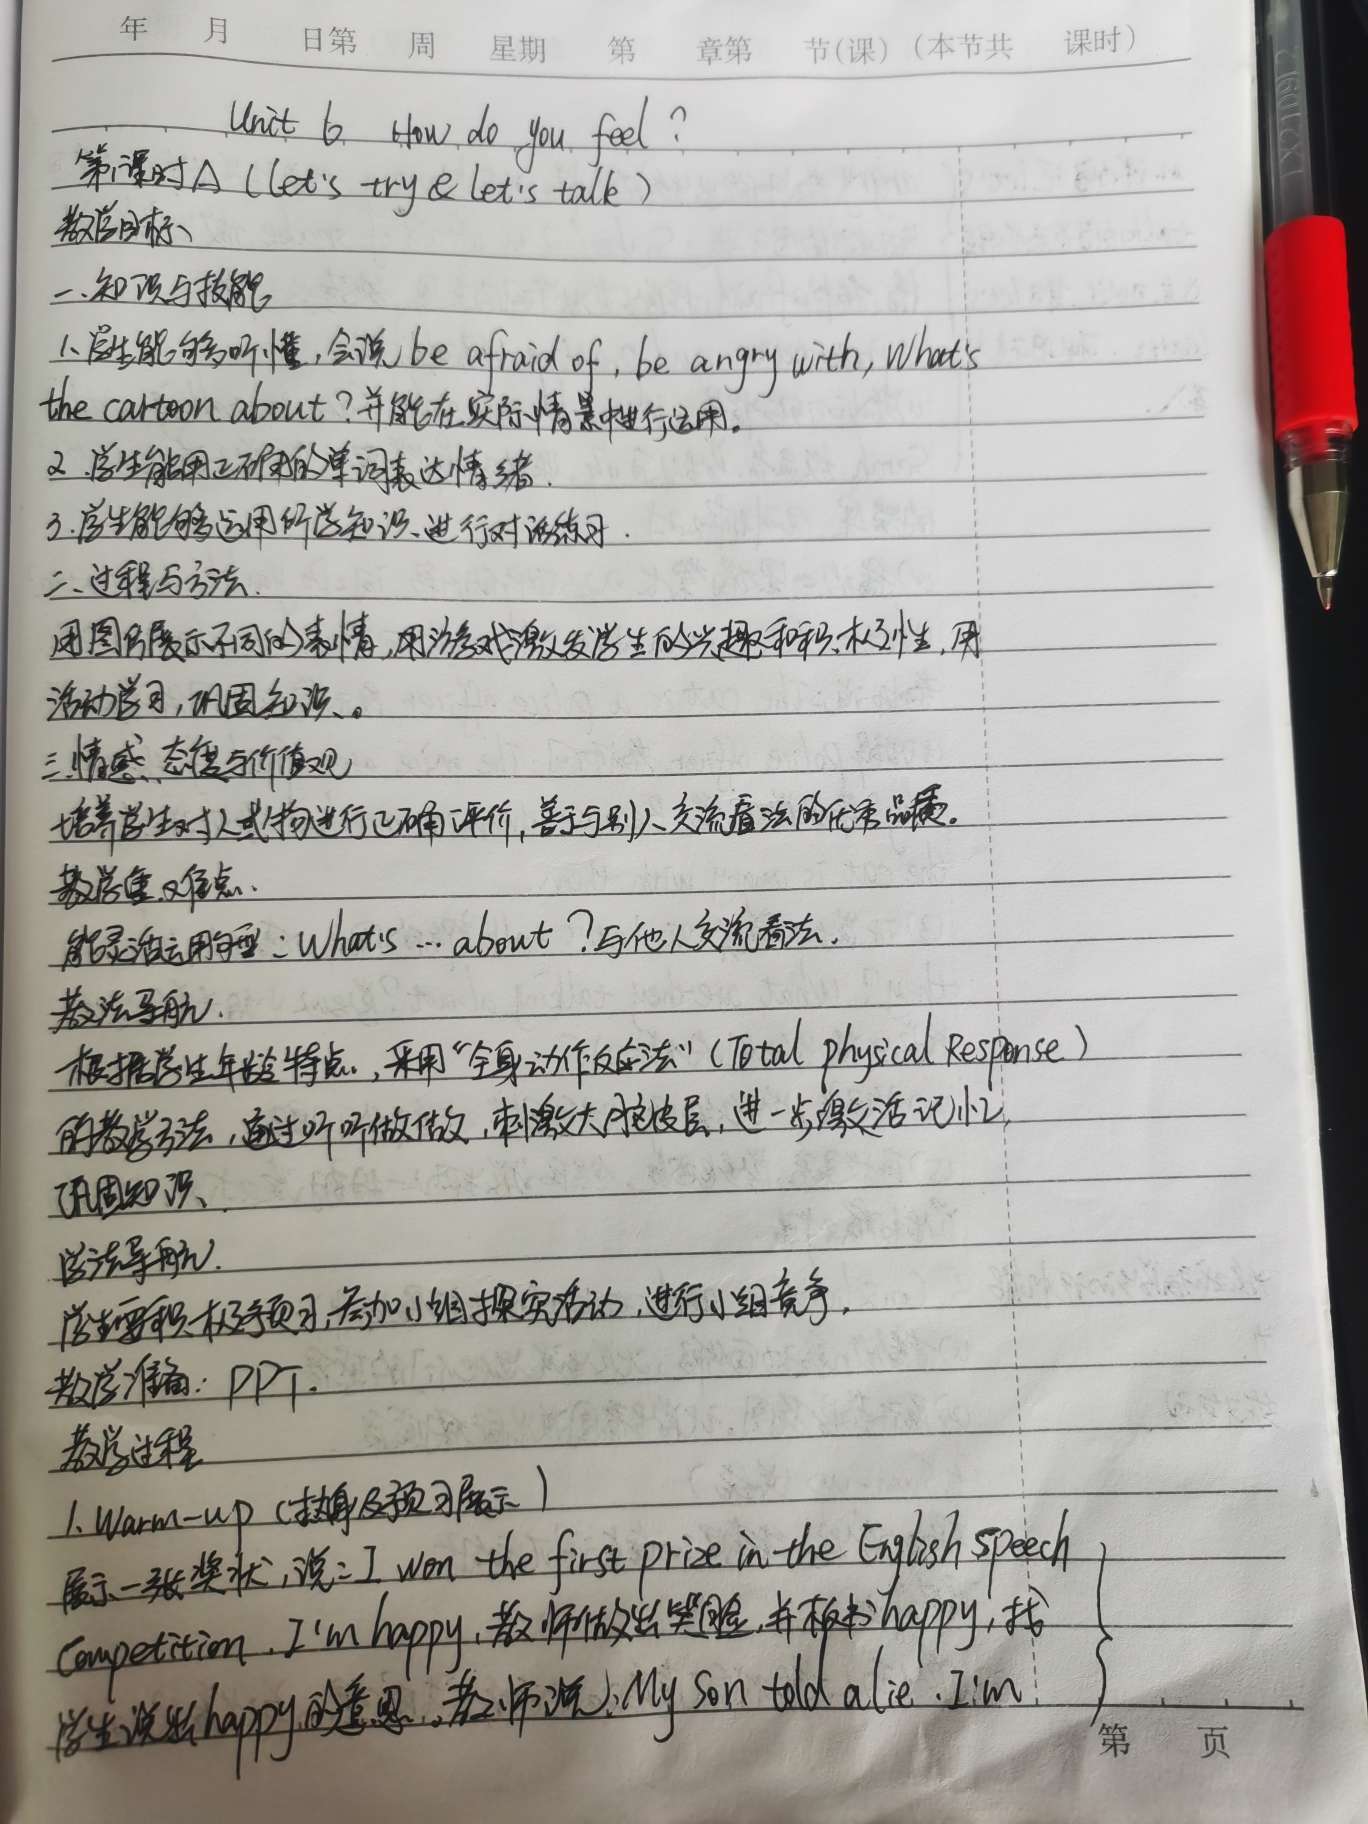 年 月 日第 周 星期 第 章第 节(课)(本节共 课时)
Unit 6 How do you feel?
第1课时A (Let's try & Let's talk)
教学目标
一、知识与技能
1. 学生能够听懂,会说be afraid of, be angry with, What's
the cartoon about?并能在实际情景中进行运用。
2. 学生能用正确的单词表达情绪.
3. 学生能够运用所学知识进行对话练习.
二、过程与方法.
用图片展示不同的表情,用游戏激发学生的兴趣和积极性,用
活动学习,巩固知识。
三、情感、态度与价值观
培养学生对人或物进行正确评价,善于与别人交流看法的优秀品质。
教学重、难点.
能灵活运用句型:What's … about?与他人交流看法.
教法导航.
根据学生年龄特点,采用“全身动作反应法”(Total physical Response)
的教学方法,通过听听做做,刺激大脑皮层,进一步激活记忆,
巩固知识.
学法导航.
学生要积极预习,参加小组探究活动,进行小组竞争.
教学准备:PPT.
教学过程
1. Warm-up (热身及预习展示)
展示一张奖状,说:I won the first prize in the English speech
Competition. I'm happy,教师做出笑脸,并板书happy,找
学生说出happy的意思。教师说:My son told a lie. I'm
第 页